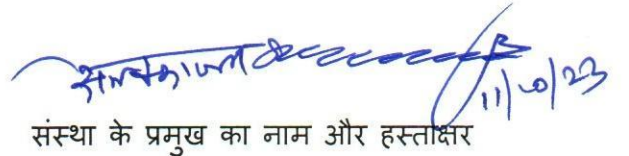 11/10/23
संस्था के प्रमुख का नाम और हस्ताक्षर